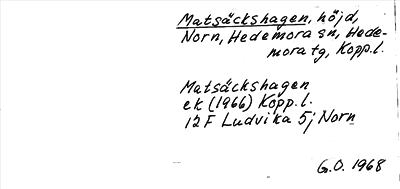 Matsäckshagen, höjd,
Norn, Hedemora sn, Hede-
mora tg, Kopp.l.
Matsäckshagen
ek (1966) Kopp.l.
12F Ludvika 5j Norn
G.O. 1968